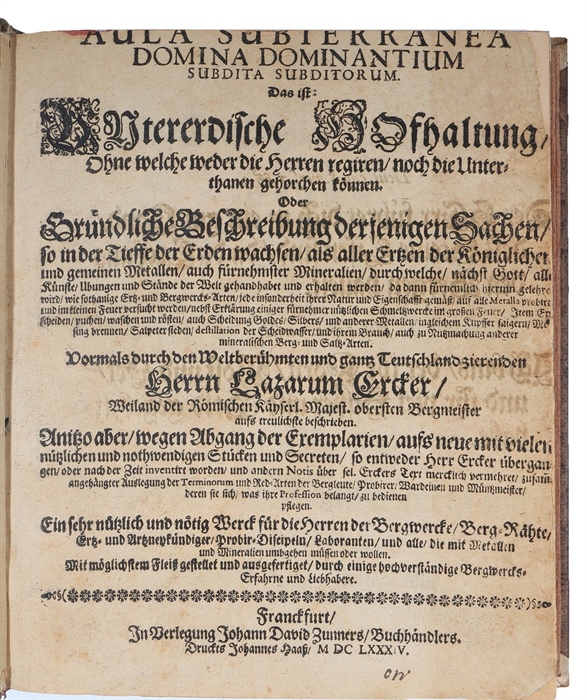 AULA SUBTERRANEA
DOMINA DOMINANTIUM
SUBDITA SUBDITORUM.
Das ist:
UNtererdische HOfhaltung/
Ohne welche weder die Herren regiren/ noch die Unter-
thanen gehorchen können.
Oder
Gründliche Beschreibung derjenigen Sachen/
so in der Tieffe der Erden wachsen/ als aller Ertzen der Königlichen
und gemeinen Metallen/ auch fürnehmster Mineralien/ durch welche/ nächst Gott/ alle
Künste/ Ubungen und Stände der Welt gehandhabet und erhalten werden/ da dann fürnemlich hierinn gelehret
wird/ wie sothanige Ertz- und Bergwercks-Arten/ jede insonderheit ihrer Natur und Eigenschafft gemäß/ auf alle Metalla probirt
und im kleinen Feuer versucht werden/ nebst Erklärung einiger fürnehmer nützlichen Schmeltzwercke im grossen Feuer/ Item Er
scheiden/ puchen/ waschen und rösten/ auch Scheidung Goldes/ Silbers/ und anderer Metallen/ ingleichem Kupffer saigern/ Mes
sing brennen/ Salpeter sieden/ destillation der Scheidwasser/ und ihrem Brauch/ auch zu Nutzmachung anderer
mineralischen Berg- und Saltz-Arten.
Vormals durch den Weltberühmten und gantz Teutschland zierenden
Herrn Lazarum Ercker/
Weiland der Römischen Käyserl. Majest. obersten Bergmeister
aufs treulichste beschrieben.
Anitzo aber/ wegen Abgang der Exemplarien/ aufs neue mit vielen
nützlichen und nothwendigen Stücken und Secreten/ so entweder Herr Ercker übergan
gen/ oder nach der Zeit inventirt worden/ und andern Notis über sel. Erckers Text mercklich vermehret/ zusamt
angehängter Auslegung der Terminorum und Red-Arten der Bergleute/ Probirer/ Wardeinen und Müntzmeister/
deren sie sich/ was ihre Profession belangt/ zu bedienen
pflegen.
Ein sehr nützlich und nötig Werck für die Herren der Bergwercke/ Berg-Rähte/
Ertz- und Artzneykündiger/ Probir-Discipeln/ Laboranten/ und alle/ die mit Metallen
und Mineralien umbgehen müssen oder wollen.
Mit möglichstem Fleiß gestellet und ausgefertiget/ durch einige hochverständige Bergwercks-
Erfahrne und Liebhabere.
Franckfurt/
In Verlegung Johann David Zunners/ Buchhändlers.
Druckts Johannes Haaß/ M DC LXXXIV.